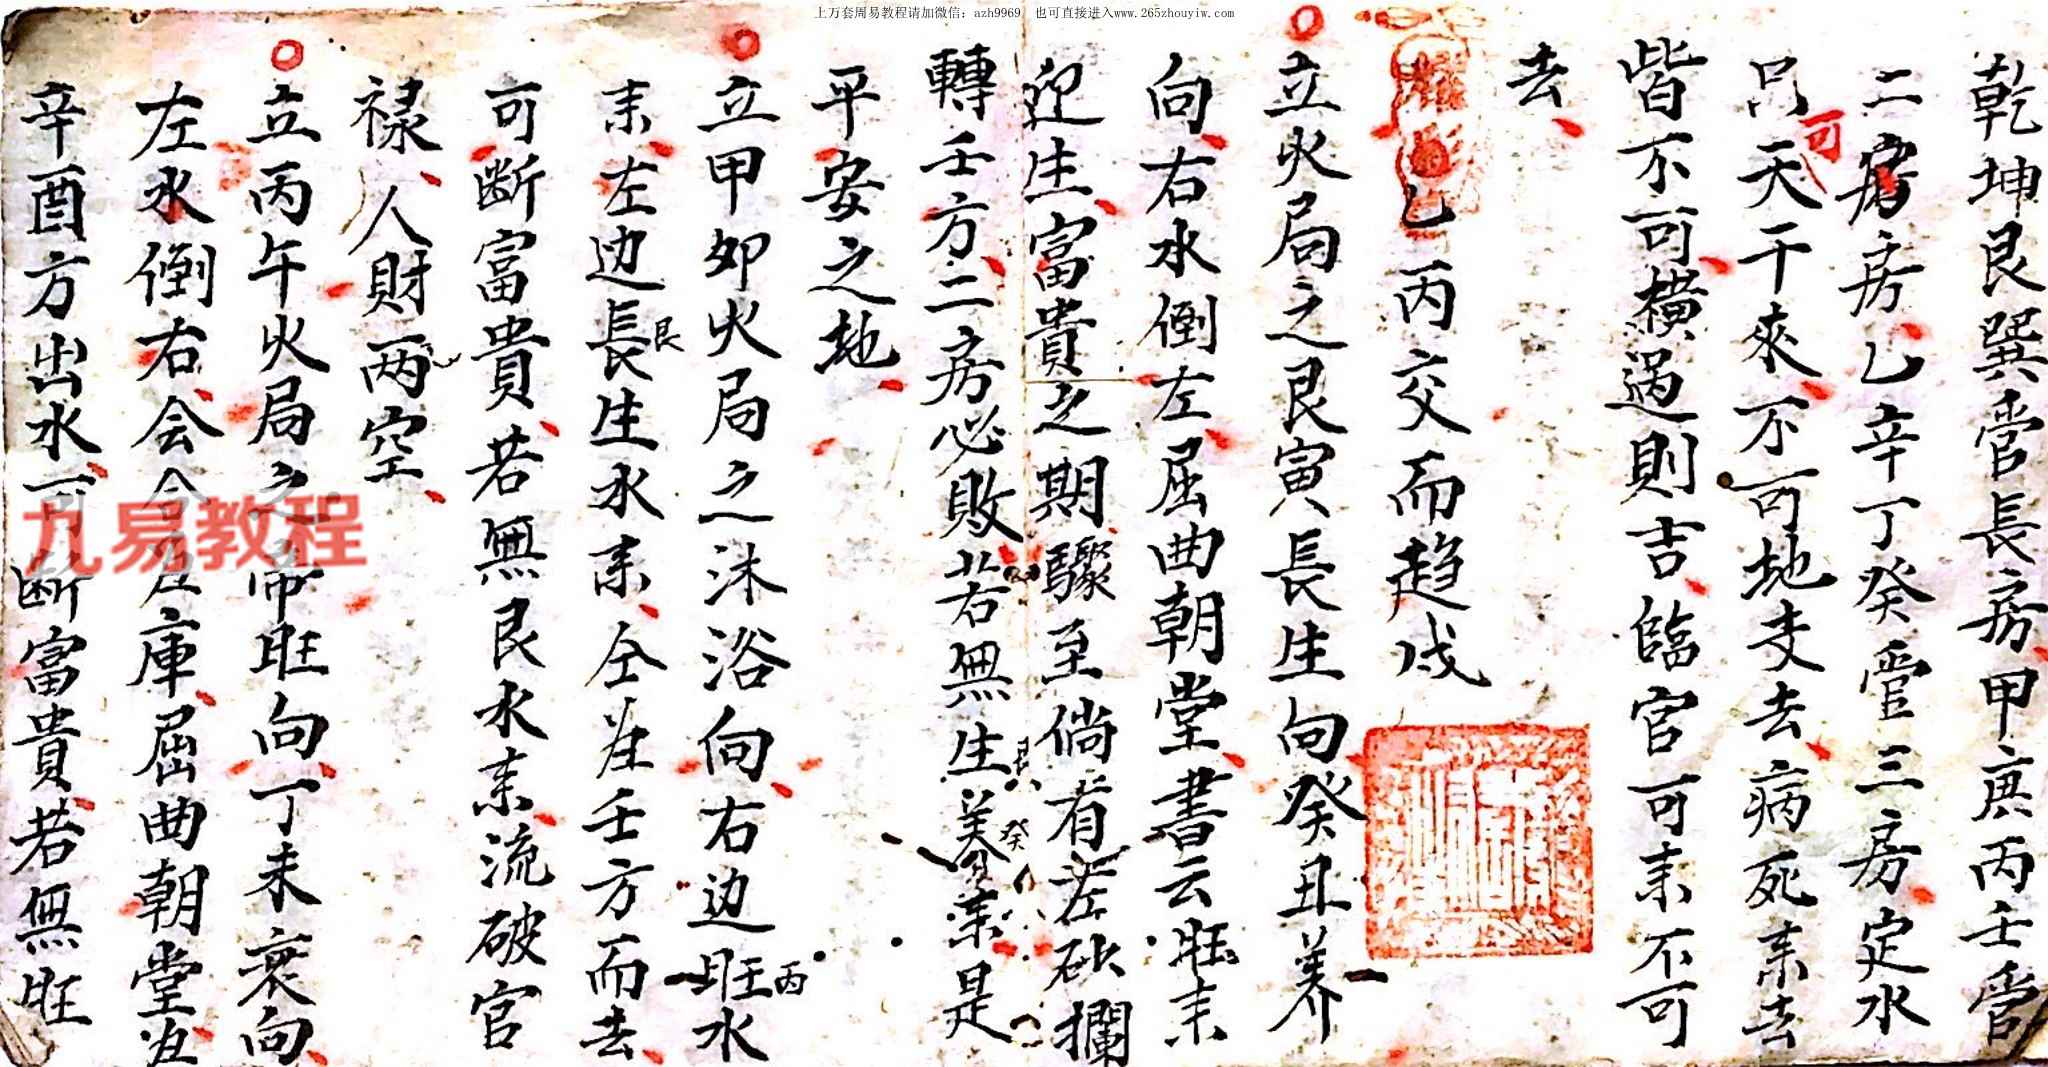 上万套周易教程请加微信：azh9969，也可直接进入www.265zhouyiw.com
乾坤艮巽管長房甲庚丙壬管
二房房乙辛丁癸管三房定水
只可天干來不可地支去病死来去
皆不可橫過則吉臨官可来不可
去
乙丙交而趋戌
立火局之艮寅長生向癸丑养
向右水倒左屈曲朝堂書云旺来
迎生富貴之期驟至倘有左砂攔
轉壬方二房必敗若無生养来是
艮 癸
平安之地
立甲卯火局之沐浴向右边旺水
丙
来左边長生水来仝在壬方而去
艮
可断富貴若無艮水来流破官
禄人財两空
立丙午火局之帝旺向丁未衰向
左水倒右会左庫屈曲朝堂
辛酉方出水可断富貴若無旺
九易教程